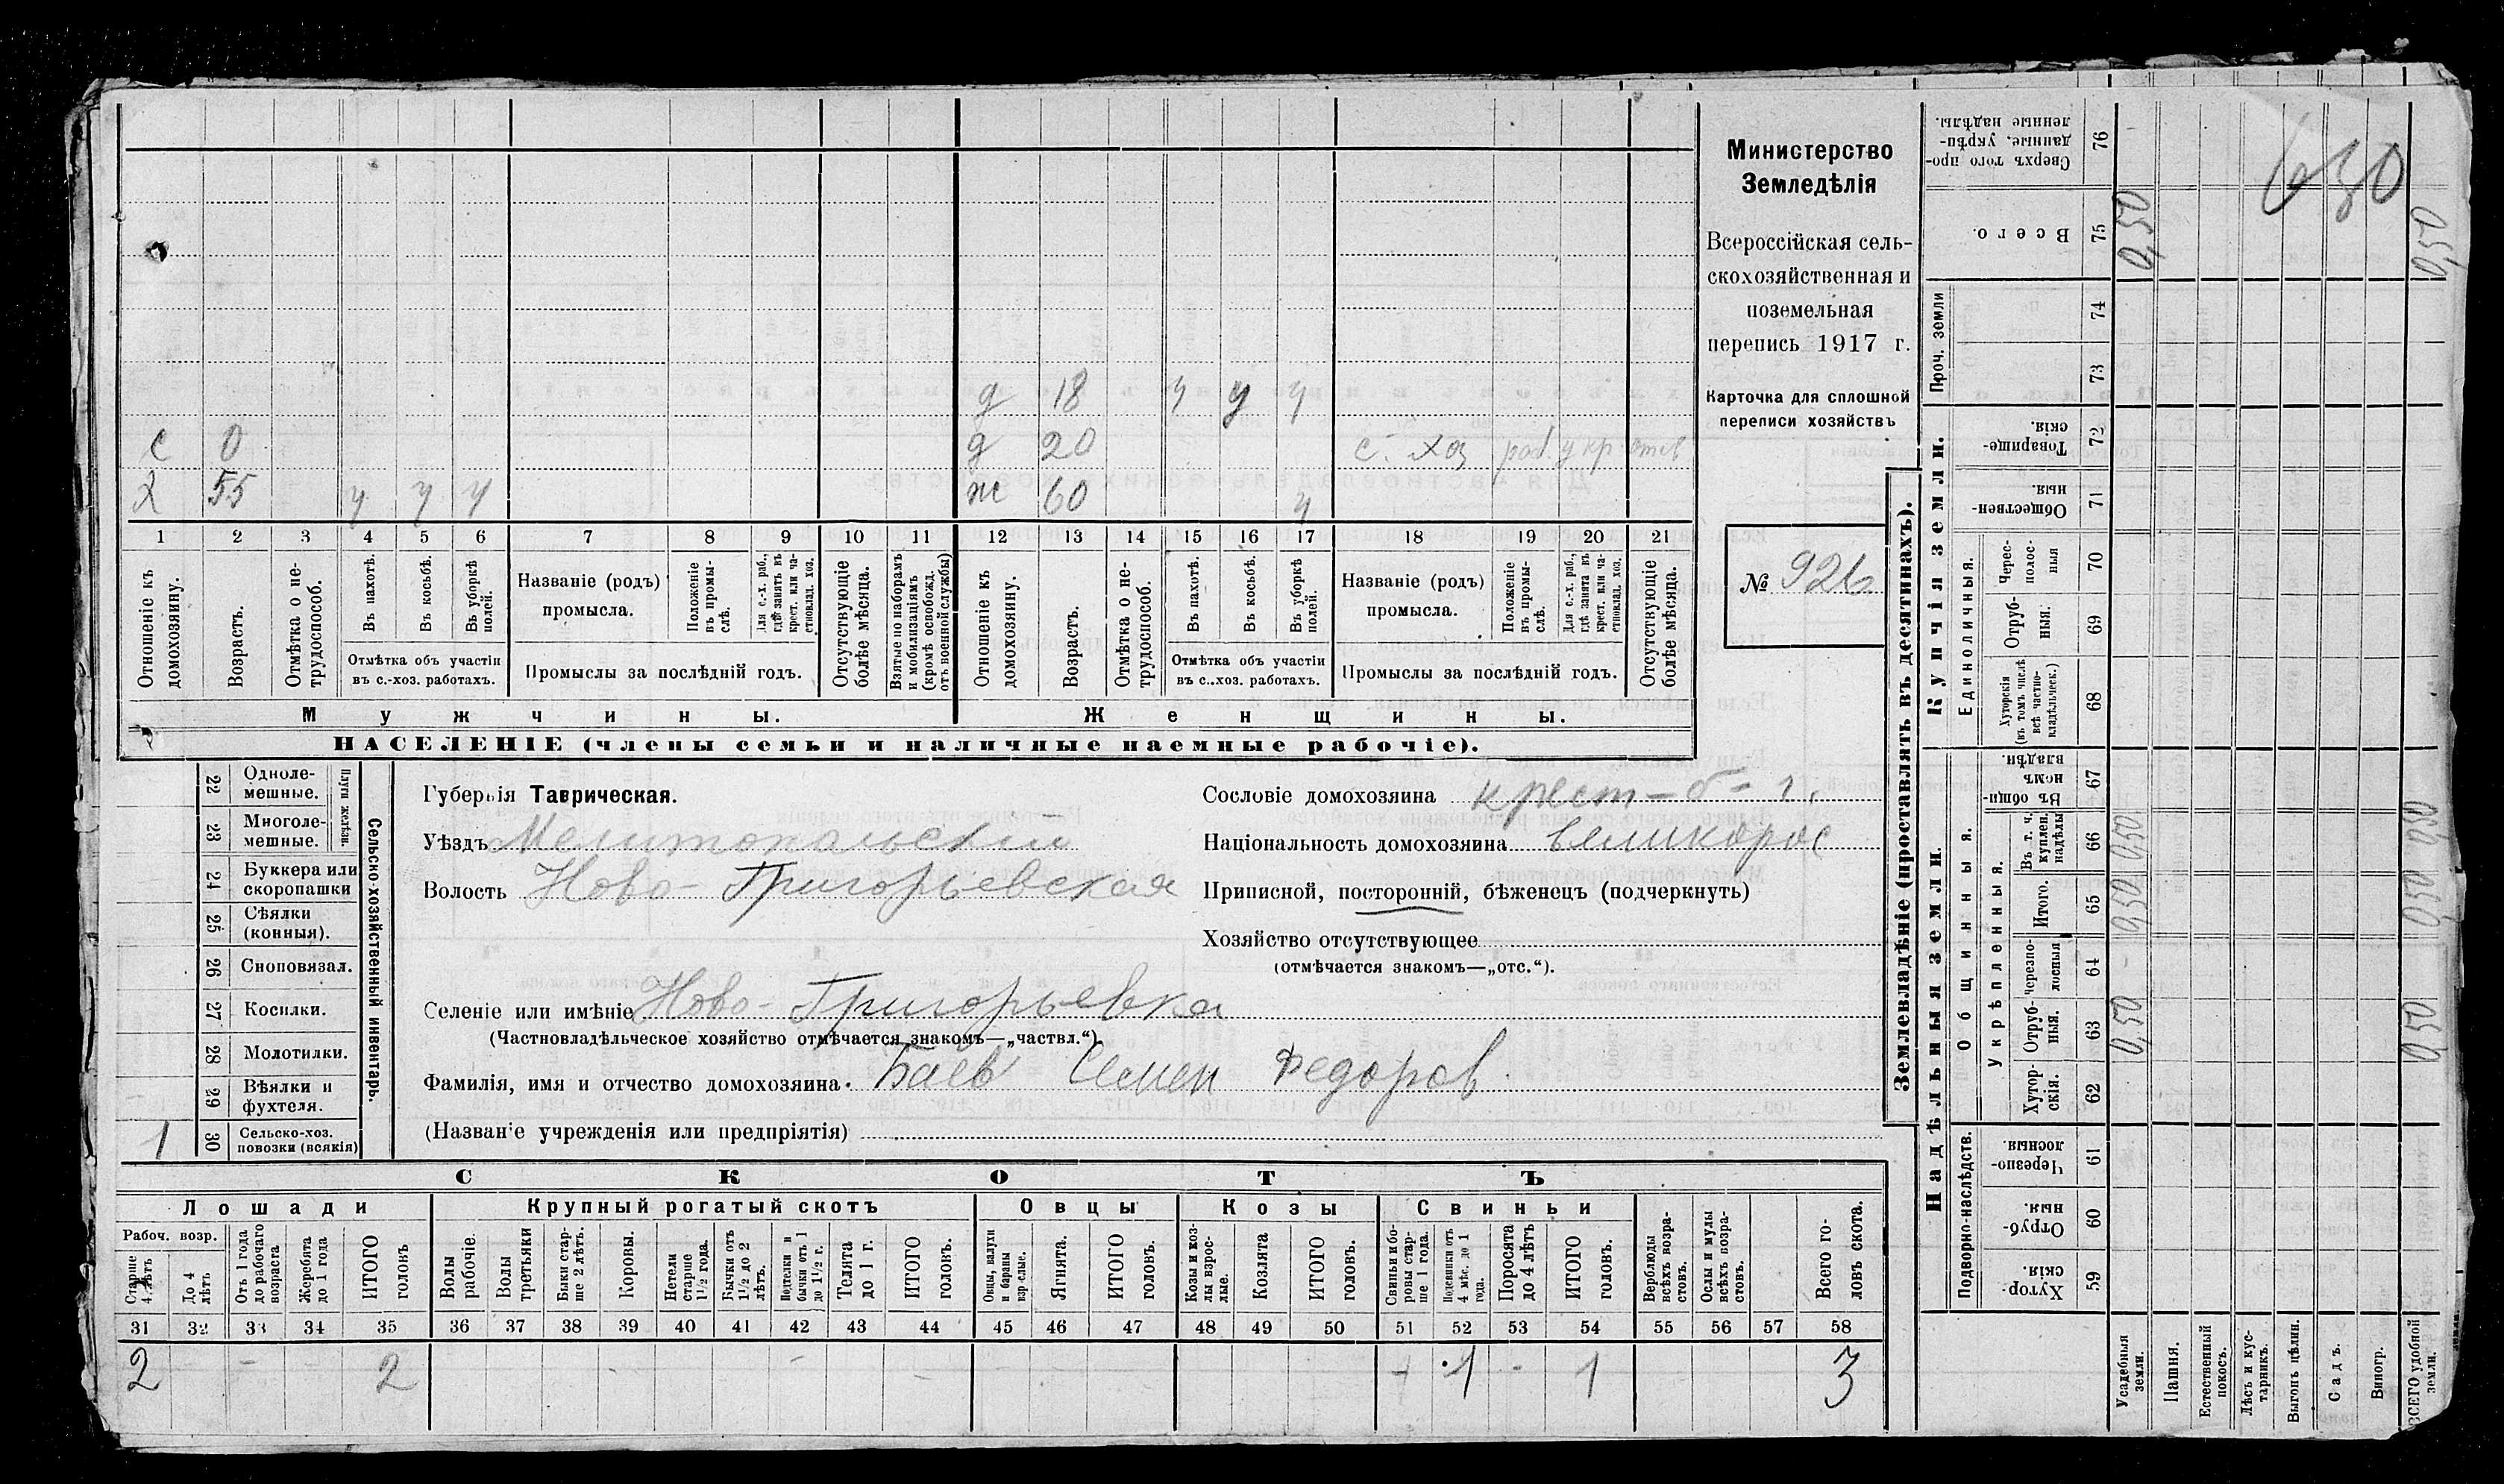 Министерство
Земледѣлія
Всероссійская сель-
скохозяйственная и
поземельная
перепись 1917 г.
Карточка для сплошной
переписи хозяйствъ
№ 926
д 18 у у у
с 0 д 20 с. хоз раб. у кр.
х 55 у у у ж 60 у
1 2 3 4 5 6 7 8 9 10 11 12 13 14 15 16 17 18 19 20 21
Отношеніе къ домохозяину.
Возрастъ.
Отмѣтка о не-трудоспособ.
Въ пахотѣ.
Въ косьбѣ.
Въ уборкѣ полей.
Отмѣтка объ участіи
въ с.-хоз. работахъ.
Названіе (родъ)
промысла.
Положеніе въ промы-слѣ.
Для с.-х. раб., гдѣ занятъ въ крест. или ча-стновлад. хоз.
Промыслы за послѣдній годъ.
Отсутствующіе болѣе мѣсяца.
Взятые по наборамъ и мобилизаціямъ (кромѣ освобожд. отъ военной службы)
Отношеніе къ домохозяину.
Возрастъ.
Отмѣтка о не-трудоспособ.
Въ пахотѣ.
Въ косьбѣ.
Въ уборкѣ полей.
Отмѣтка объ участіи
въ с..хоз. работахъ.
Названіе (родъ)
промысла.
Положеніе въ промы-слѣ.
Для с.-х. раб., гдѣ занятъ въ крест. или ча-стновлад. хоз.
Промыслы за послѣдній годъ.
Отсутствующіе болѣе мѣсяца.
Мужчины. Женщины.
НАСЕЛЕНІЕ (члены семьи и наличные наемные рабочіе).
22 Одноле-мешные.
23 Многоле-мешные.
Плуги желѣзн.
24 Буккера или скоропашки
25 Сѣялки (конныя).
26 Сноповязал.
27 Косилки.
28 Молотилки.
29 Вѣялки и фухтеля.
1 30 Сельско-хоз. повозки (всякія)
Сельско-хозяйственный инвентарь.
Губернія Таврическая.
Уѣздъ Мелитопольскій
Волость Ново-Григорьевская
Селеніе или имѣніе Ново-Григорьевка
(Частновладѣльческое хозяйство отмѣчается знакомъ—„частвл.“).
Фамилія, имя и отчество домохозяина. Баев Семен Федоров.
(Названіе учрежденія или предпріятія)
Сословіе домохозяина крест-
Національность домохозяина великорос
Приписной, посторонній, бѣженецъ (подчеркнуть)
Хозяйство отсутствующее
(отмѣчается знакомъ—„отс.“).
СКОТЪ
Лошади Крупный рогатый скотъ Овцы Козы Свиньи
Рабоч. возр.
Старше 4 лѣтъ
До 4 лѣтъ
Отъ 1 года до рабочаго возраста
Жеребята до 1 года
ИТОГО головъ
Волы рабочіе.
Волы третьяки
Быки стар-ше 2 лѣтъ.
Коровы.
Нетели старше 1½ года.
Бычки отъ 1½ до 2 лѣтъ.
Подтелки и бычки отъ 1 до 1½ г.
Телята до 1 г.
ИТОГО головъ.
Овцы, валухи и бараны взрослые.
Ягнята.
ИТОГО головъ.
Козы и коз-лы взрос-лые.
Козлята
ИТОГО головъ.
Свиньи и бо-ровы стар-ше 1 года.
Подсвинки отъ 4 мѣс. до 1 года.
Поросята до 4 лѣтъ
ИТОГО головъ.
Верблюды всѣхъ возра-стовъ.
Ослы и мулы всѣхъ возра-стовъ.
Всего го-ловъ скота.
31 32 33 34 35 36 37 38 39 40 41 42 43 44 45 46 47 48 49 50 51 52 53 54 55 56 57 58
2 - 2 - - - 1 - 1 3
Землевладѣніе (проставлять въ десятинахъ).
Купчія земли.
Надѣльныя земли.
Сверхъ того про-данные, укрѣп-ленные надѣлы. 76
Всего. 75 0,50 0,50
630
Проч. земли 74 73
Товарище-скія. 72
Обществен-ныя. 71
Единоличныя.
Черес-полос-ныя 70
Отруб-ныя. 69
Хуторскія (въ томъ числѣ всѣ частно-владѣльческ.) 68
Общинныя.
Въ общи-номъ владѣн. 67
Укрѣпленныя.
Въ т. ч. куплен. надѣлы 66 0,50 0,50
Итого. 65 0,50 0,50
черезпо-лосныя 64 -
Отруб-ныя. 63 0,50 0,50
Хутор-скія. 62
Подворно-наслѣдств.
Черезпо-лосныя 61
Отруб-ныя. 60
Хутор-скія. 59
Усадебныя земли.
Пашня.
Естественный покосъ.
Лѣсъ и кус-тарникъ.
Выгонъ цѣлин.
Садъ.
Виногр.
ВСЕГО удобной земли.